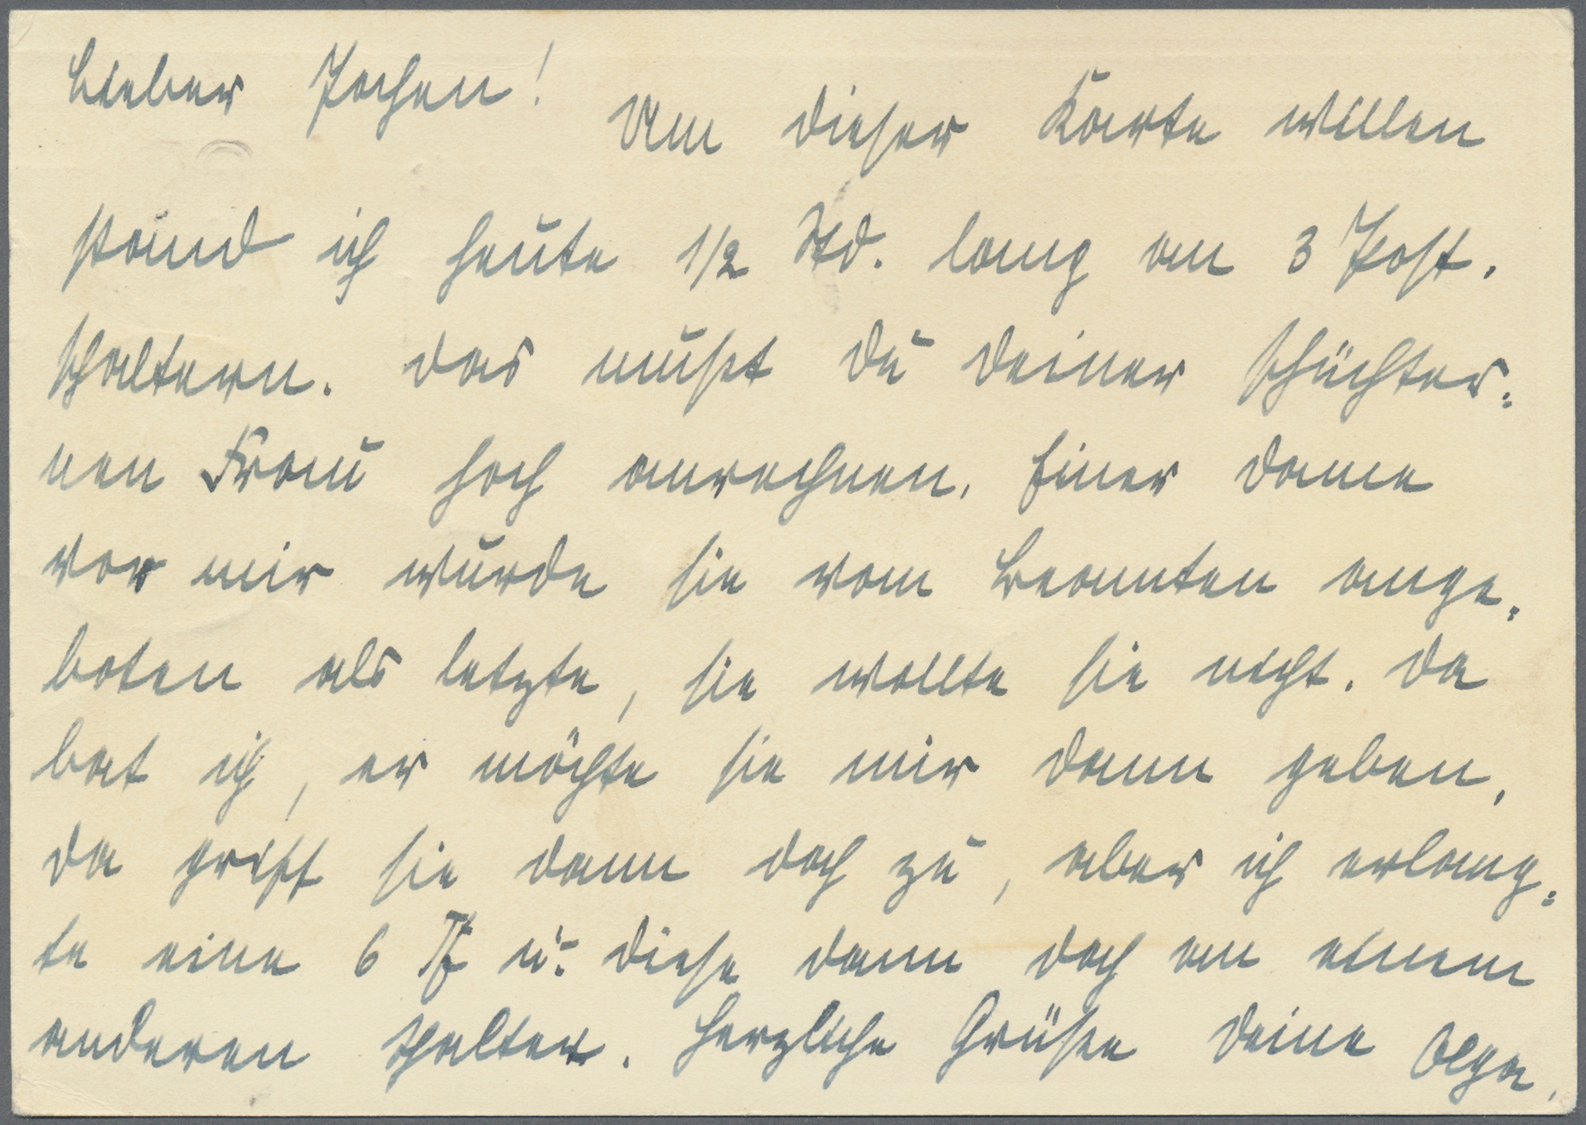 Lieber Jochen!
Um dieser Karte willen
stand ich heute 1/2 Std. lang an 3 Post-
schaltern. Das mußt du deiner schüchter=
nen Frau hoch anrechnen. Einer Dame
vor mir wurde sie vom Beamten ange=
boten als letzte, sie wollte sie nicht. Da
bat ich, er möchte sie mir dann geben,
da griff sie dann doch zu, aber ich erlang=
te eine 6 Pf u. diese dann doch an einem
anderen Schalter. Herzliche Grüße deine Olga.